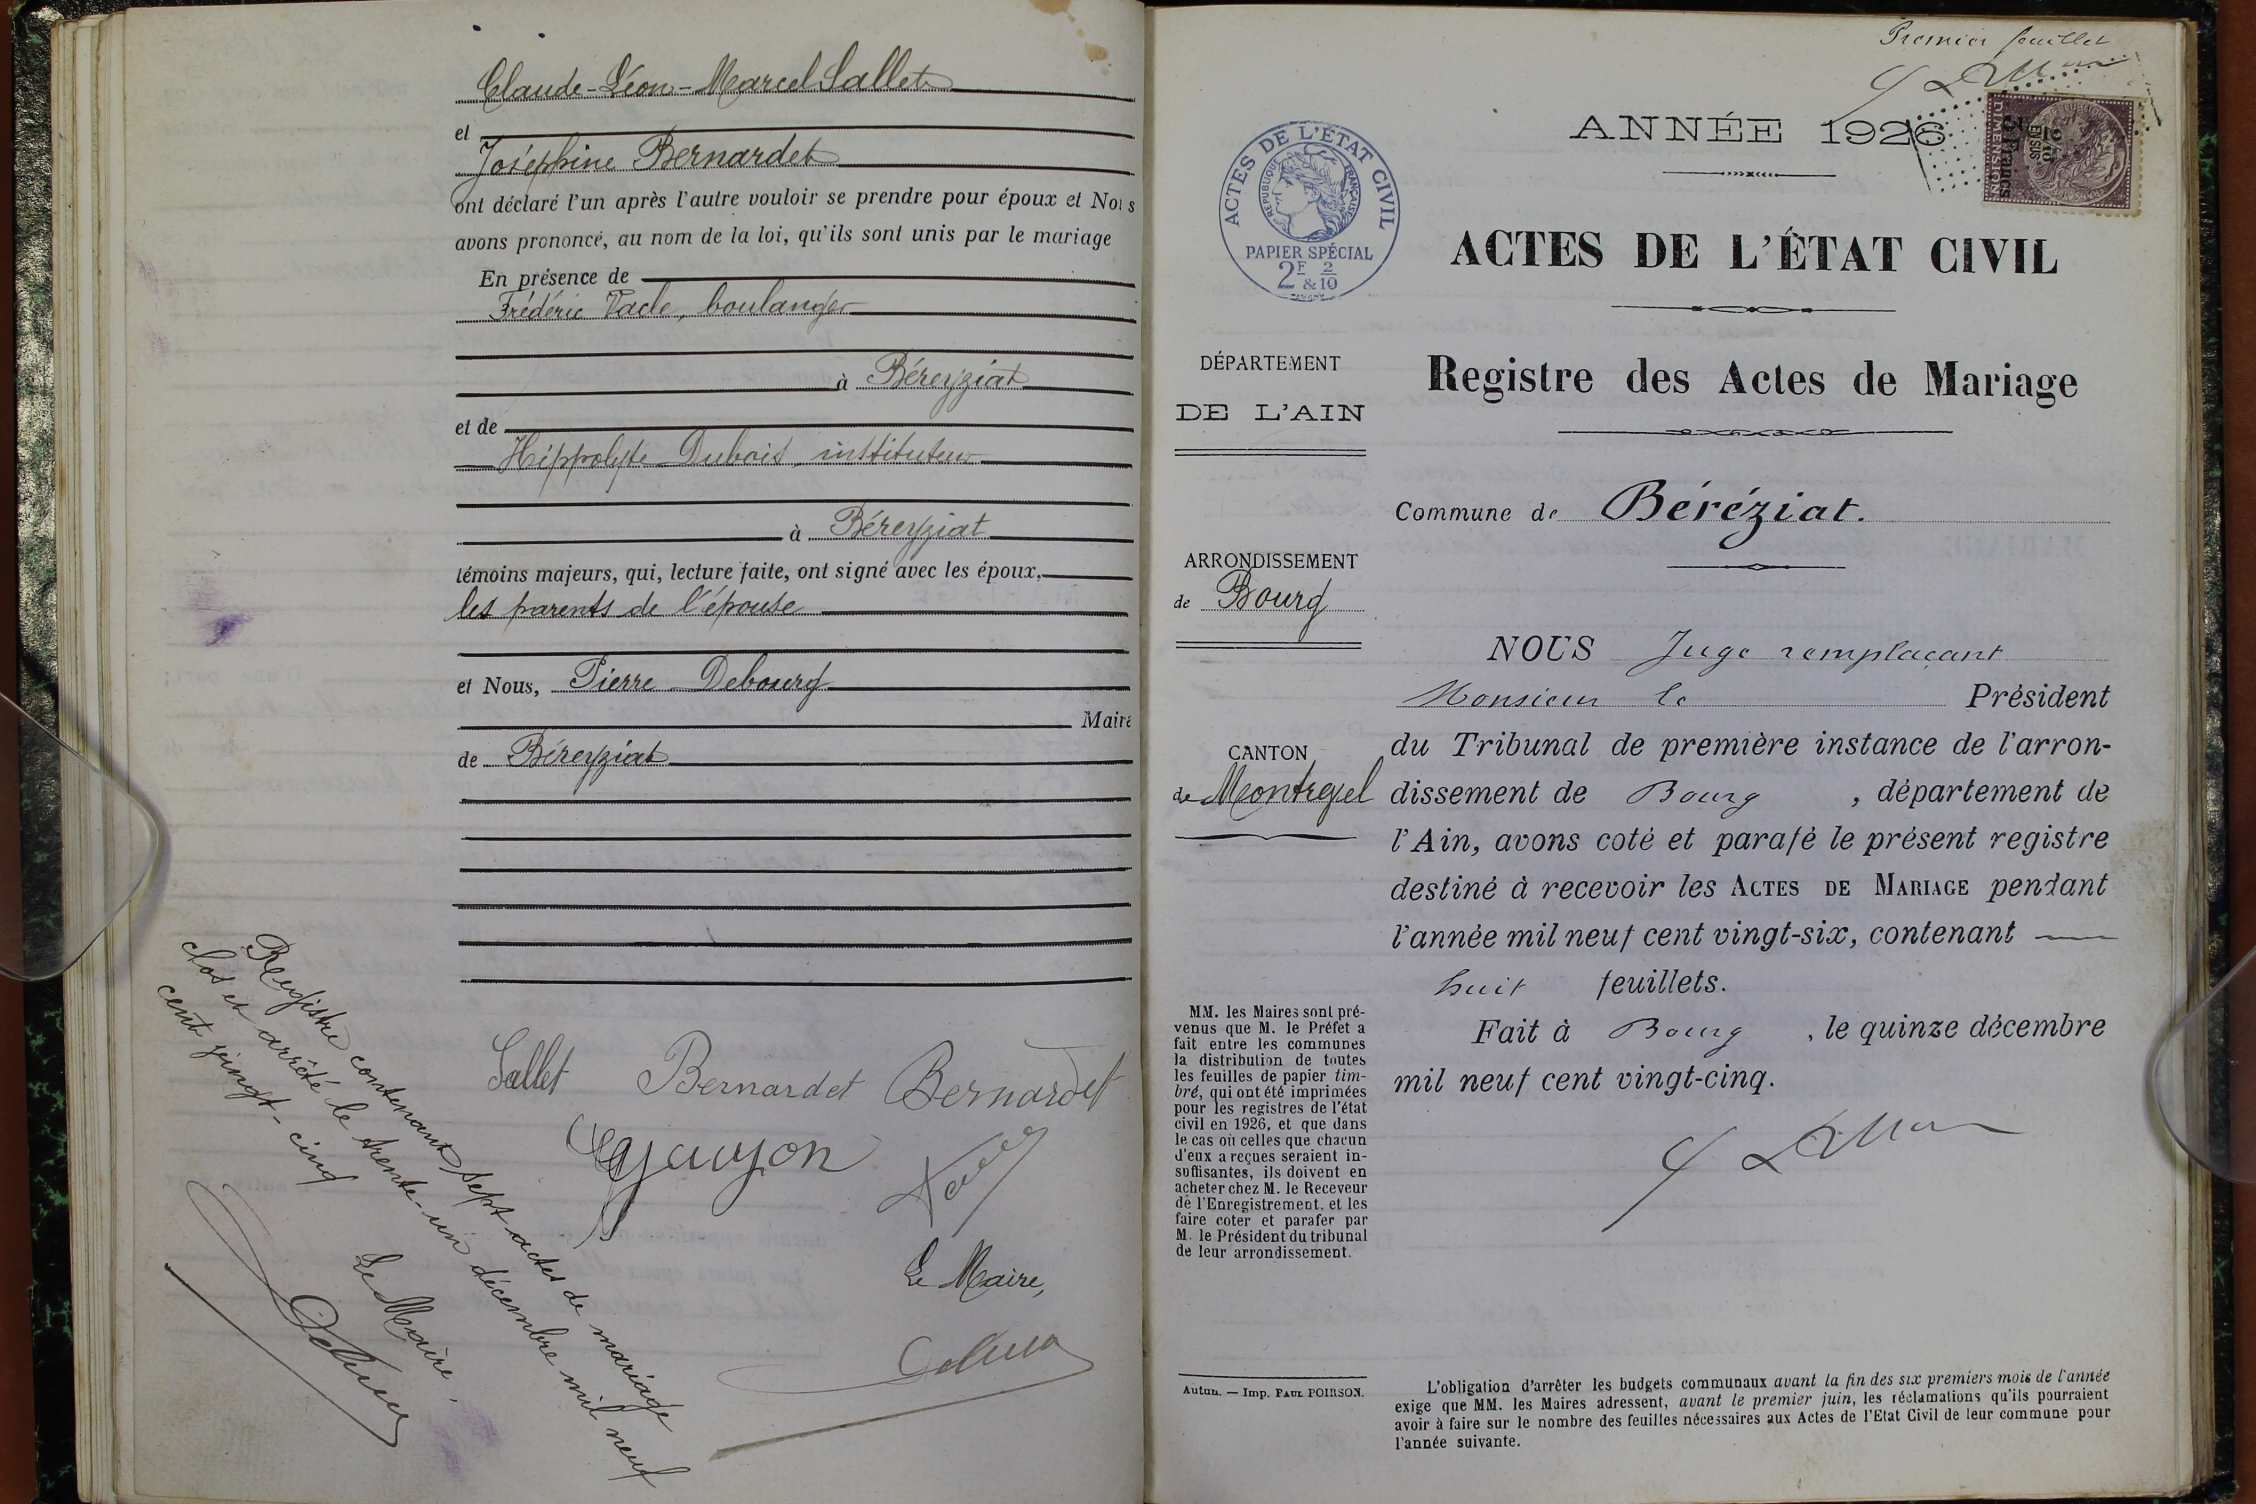 Claude-Léon-Marcel Sallet
et
Joséphine Bernardet
ont déclaré l'un après l'autre vouloir se prendre pour époux et Nous
avons prononcé, au nom de la loi, qu'ils sont unis par le mariage
En présence de
Frédéric Vacle, boulanger
à Béreyziat
et de
Hippolyte Dubois, instituteur
à Béreyziat
témoins majeurs, qui, lecture faite, ont signé avec les époux,
les parents de l'épouse
et Nous, Pierre Debourg
Maire
de Béreyziat
Sallet Bernardet Bernardet
Guyon
Vacle
Le Maire,
Registre contenant sept actes de mariage
clos et arrêté le trente-un décembre mil neuf
cent vingt-cinq
Le Maire,
Premier feuillet
ANNÉE 1926
DIMENSION
2/10
EN SUS
3 Francs
ACTES DE L'ÉTAT CIVIL
RÉPUBLIQUE FRANÇAISE
PAPIER SPÉCIAL
2F & 2/10
ACTES DE L'ÉTAT CIVIL
Registre des Actes de Mariage
DÉPARTEMENT
DE L'AIN
Commune de Béréziat.
ARRONDISSEMENT
de Bourg
CANTON
de Montrevel
NOUS Juge remplaçant
Monsieur le Président
du Tribunal de première instance de l'arron-
dissement de Bourg, département de
l'Ain, avons coté et parafé le présent registre
destiné à recevoir les ACTES DE MARIAGE pendant
l'année mil neuf cent vingt-six, contenant
huit feuillets.
Fait à Bourg, le quinze décembre
mil neuf cent vingt-cinq.
MM. les Maires sont pré-
venus que M. le Préfet a
fait entre les communes
la distribution de toutes
les feuilles de papier tim-
bré, qui ont été imprimées
pour les registres de l'état
civil en 1926, et que dans
le cas où celles que chacun
d'eux a reçues seraient in-
suffisantes, ils doivent en
acheter chez M. le Receveur
de l'Enregistrement, et les
faire coter et parafer par
M. le Président du tribunal
de leur arrondissement.
Autun. — Imp. PAUL POIRSON.
L'obligation d'arrêter les budgets communaux avant la fin des six premiers mois de l'année
exige que MM. les Maires adressent, avant le premier juin, les réclamations qu'ils pourraient
avoir à faire sur le nombre des feuilles nécessaires aux Actes de l'Etat Civil de leur commune pour
l'année suivante.